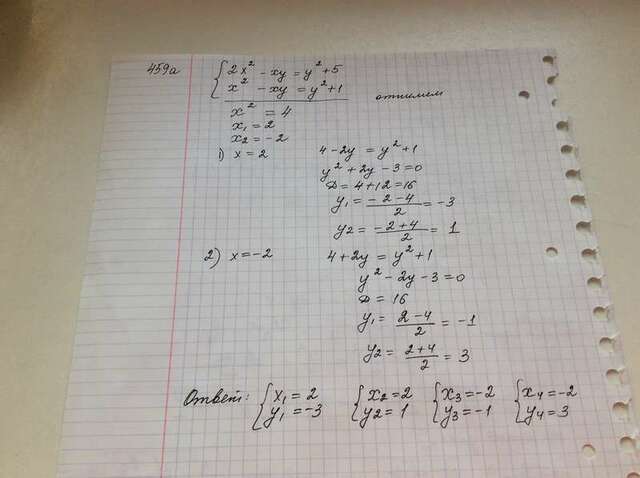 459а
2x² - xy = y² + 5
x² - xy = y² + 1
отнимем
x² = 4
x₁ = 2
x₂ = -2
1) x = 2
4 - 2y = y² + 1
y² + 2y - 3 = 0
D = 4 + 12 = 16
y₁ = (-2-4)/2 = -3
y₂ = (-2+4)/2 = 1
2) x = -2
4 + 2y = y² + 1
y² - 2y - 3 = 0
D = 16
y₁ = (2-4)/2 = -1
y₂ = (2+4)/2 = 3
Ответ: { x₁ = 2 { x₂ = 2 { x₃ = -2 { x₄ = -2
y₁ = -3 y₂ = 1 y₃ = -1 y₄ = 3